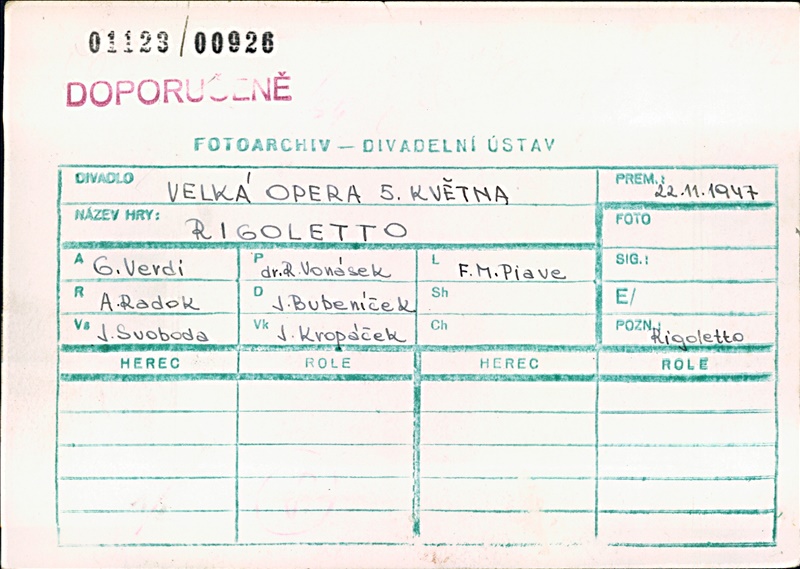 01123/00926
DOPORUČENĚ
FOTOARCHIV — DIVADELNÍ ÚSTAV
DIVADLO VELKÁ OPERA 5. KVĚTNA PREM.: 22.11.1947
NÁZEV HRY: RIGOLETTO FOTO
A G. Verdi P dr.R. Vonásek L F.M. Piave SIG.:
R A. Radok D J. Bubeníček Sh E/
Vs J. Svoboda Vk J. Kropáček Ch POZN. Rigoletto
HEREC ROLE HEREC ROLE